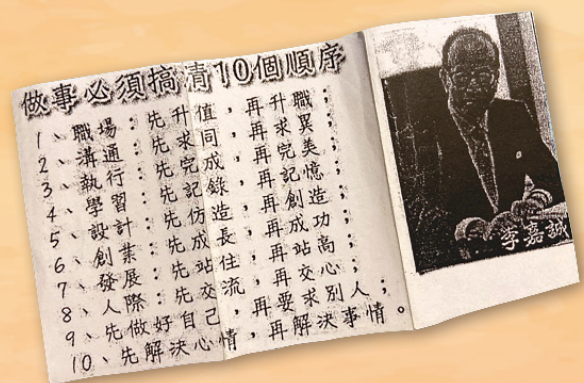 做事必須搞清10個順序
1、職場：先升值，再升職；
2、溝通：先求同，再求異；
3、執行：先完成，再完美；
4、學習：先記錄，再記憶；
5、設計：先仿造，再創造；
6、創業：先成長，再成功；
7、發展：先站住，再站高；
8、人際：先交流，再交心；
9、先做好自己，再要求別人；
10、先解決心情，再解決事情。
李嘉誠